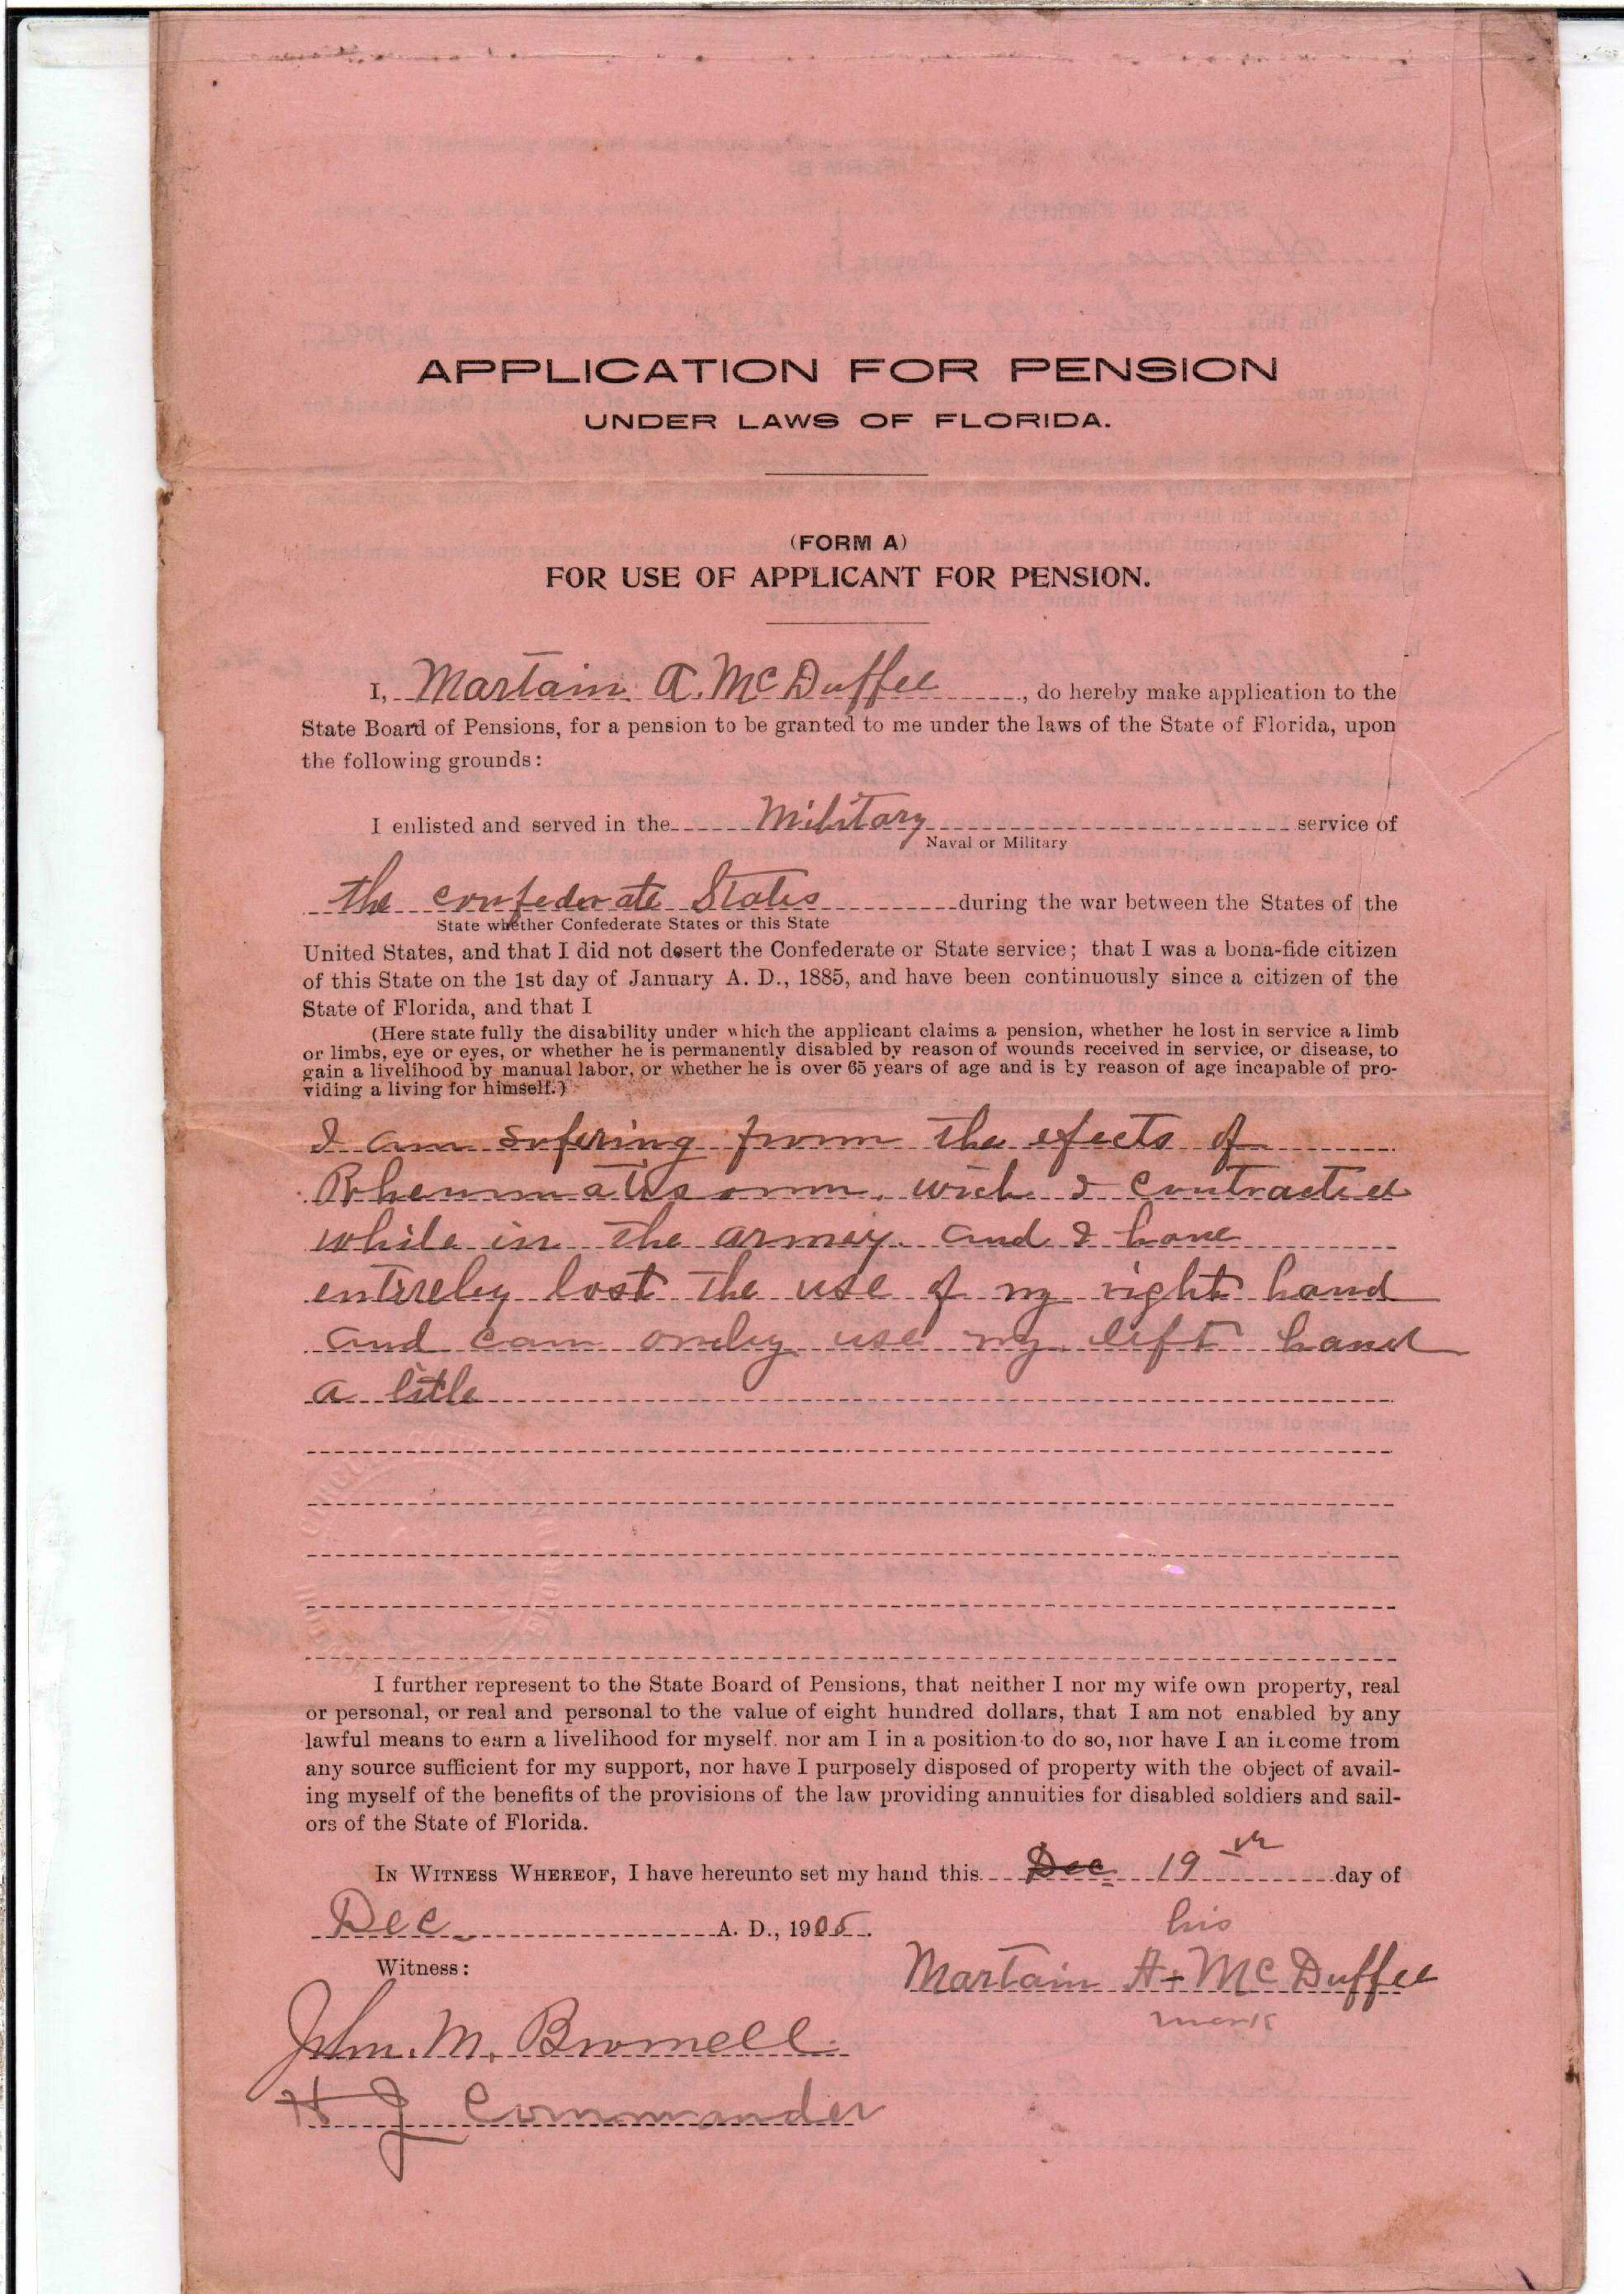 APPLICATION FOR PENSION
UNDER LAWS OF FLORIDA.
(FORM A)
FOR USE OF APPLICANT FOR PENSION.
I, Martain A. McDuffee, do hereby make application to the
State Board of Pensions, for a pension to be granted to me under the laws of the State of Florida, upon
the following grounds:
I enlisted and served in the Military service of
Naval or Military
the confederate States during the war between the States of the
State whether Confederate States or this State
United States, and that I did not desert the Confederate or State service; that I was a bona-fide citizen
of this State on the 1st day of January A. D., 1885, and have been continuously since a citizen of the
State of Florida, and that I
(Here state fully the disability under which the applicant claims a pension, whether he lost in service a limb
or limbs, eye or eyes, or whether he is permanently disabled by reason of wounds received in service, or disease, to
gain a livelihood by manual labor, or whether he is over 65 years of age and is by reason of age incapable of pro-
viding a living for himself.)
I am sufering from the efects of
wich I contracted
while in the armey and I have
entireley lost the use of my right hand
and can onley use my left hand
a litle
I further represent to the State Board of Pensions, that neither I nor my wife own property, real
or personal, or real and personal to the value of eight hundred dollars, that I am not enabled by any
lawful means to earn a livelihood for myself. nor am I in a position to do so, nor have I an income from
any source sufficient for my support, nor have I purposely disposed of property with the object of avail-
ing myself of the benefits of the provisions of the law providing annuities for disabled soldiers and sail-
ors of the State of Florida.
IN WITNESS WHEREOF, I have hereunto set my hand this Dec 19th day of
Dec A. D., 1905.
his
Witness:
Martain A + McDuffee
mark
John. M.
H J Commander